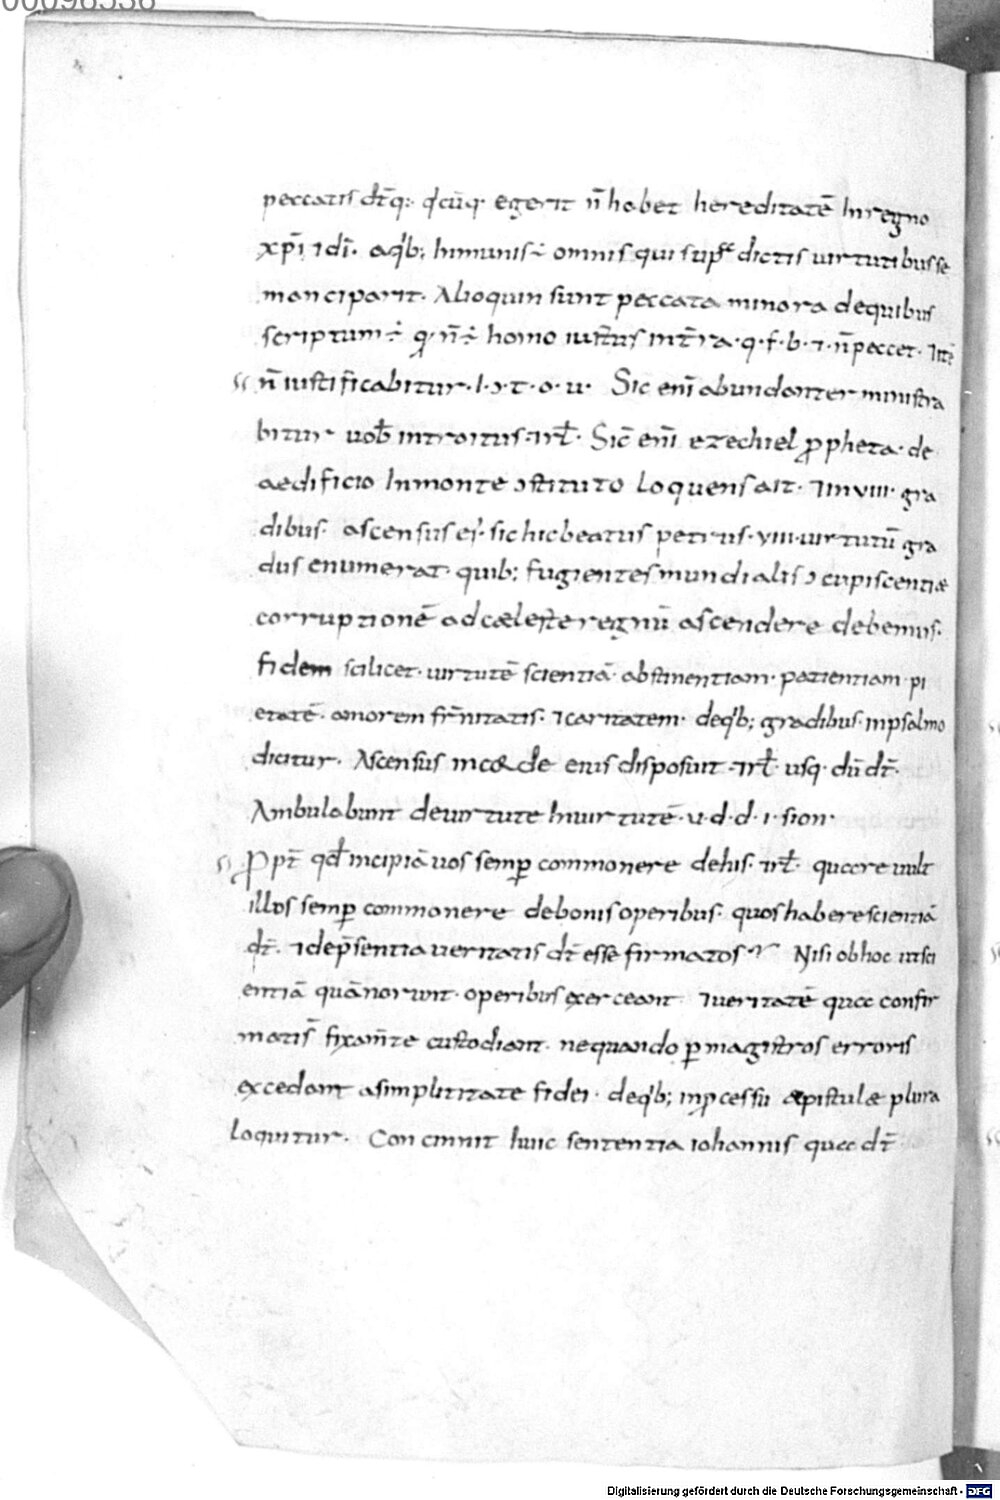 00096536
peccatis dt̄q: qicūq· egerit n̄ habet hereditatē in regno
xp̄i ⁊ dī· aq'b; inmunis ÷ omnis qui sup̄ dictis uirtutibus se
manciparit· Alioquin sunt peccata minora de quibus
scriptum ÷ q n̄ ÷ homo iustus in t̄ra· q· f· b· ⁊· n̄ peccet· ⁊ itē
n̄ iustificabitur· i· ɔ· t· o· u· Sic enī abundanter ministra
bitur uob̄ introitus· ⁊rł· Sic̄ enī ezechiel ꝓpheta· de
aedificio in monte ɔstituto loquens ait· ⁊ in viii· gra
dibus· ascensus ei'· sic hic beatus petrus· viii· uirtutū gra
dus enumerat· quib; fugientes mundialis ɔcupiscentiæ
corruptionē ad cæleste regnū ascendere debemus·
fidem scilicet· uirtutē scientiā· abstinentiam· patientiam· pi
etatē· amorem fr̄nitatis· ⁊ caritatem· deq'b; gradibus in psalmo
dicitur· Ascensus in cor& de eius disposuit· ⁊rł· usq· dū dt̄·
Ambulabunt de uirtute in uirtutē· u· d· d· i· sion·
Ꝓpt̄ qđ incipiā uos semꝑ commonere de his· ⁊rł· quare uult
illos semꝑ commonere de bonis operibus· quos habere scientiā
dt̄· ⁊ de p̄sentia ueritatis dt̄ esse firmatos Nisi ob hoc ut sci
entiā quā norunt· operibus exerceant· ⁊ ueritatē qua confir
matis̄ fixam̄te custodiant· ne quando ꝑ magistros erroris
excedant a simplitate fidei· deq'b; inꝓcessu æpistulæ plura
loquitur· Concinnit huic sententia iohannis qua dt̄
Digitalisierung gefördert durch die Deutsche Forschungsgemeinschaft - DFG